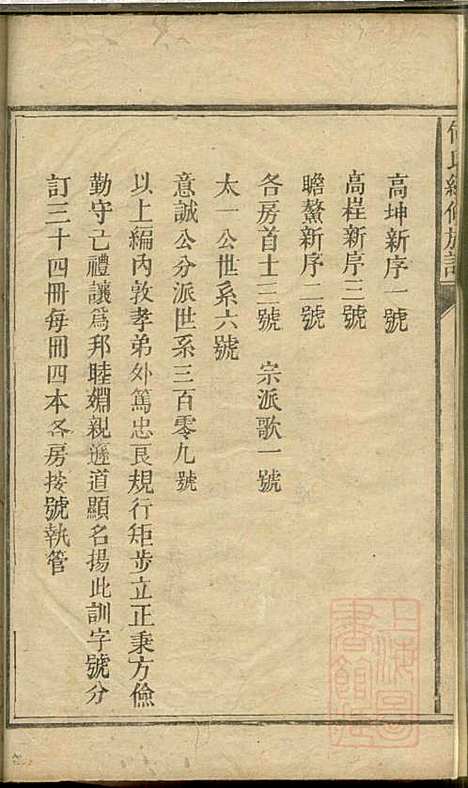 氏續修族譜
高坤新序一號
高程新序三號
瞻鰲新序二號
各房首士三號　宗派歌一號
太一公世系六號
意誠公分派世系三百零九號
以上編內敦孝弟外篤忠良規行矩步立正秉方儉
勤守亡禮讓爲邦睦婣親遜道顯名揚此訓字號分
訂三十四冊每冊四本各房按號執管
上海圖
書館藏